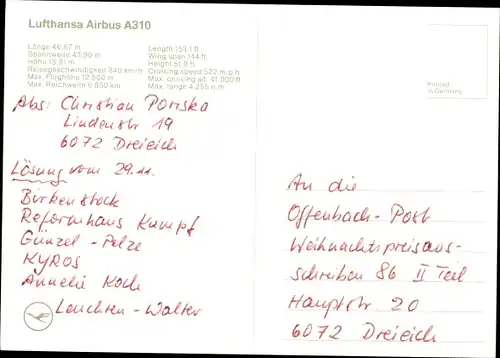 Lufthansa Airbus A310
Länge 46,67 m
Spannweite 43,90 m
Höhe 15,81 m
Reisegeschwindigkeit 840 km/h
Max. Flughöhe 12.500 m
Max. Reichweite 6.850 km
Length 153.1 ft
Wing span 144 ft
Height 51.8 ft
Cruising speed 522 m.p.h
Max. cruising alt. 41.000 ft
Max. range 4.255 n.m
Printed
in Germany
Abs: Christian Poriska
Lindenstr 19
6072 Dreieich
Lösung vom 29.11.
Birkenstock
Reformhaus Kumpf
Günzel - Pelze
KYROS
Annelie Koch
Leuchten - Walter
An die
Offenbach-Post
Weihnachtspreisaus-
schreiben 86 II Teil
Hauptstr 20
6072 Dreieich